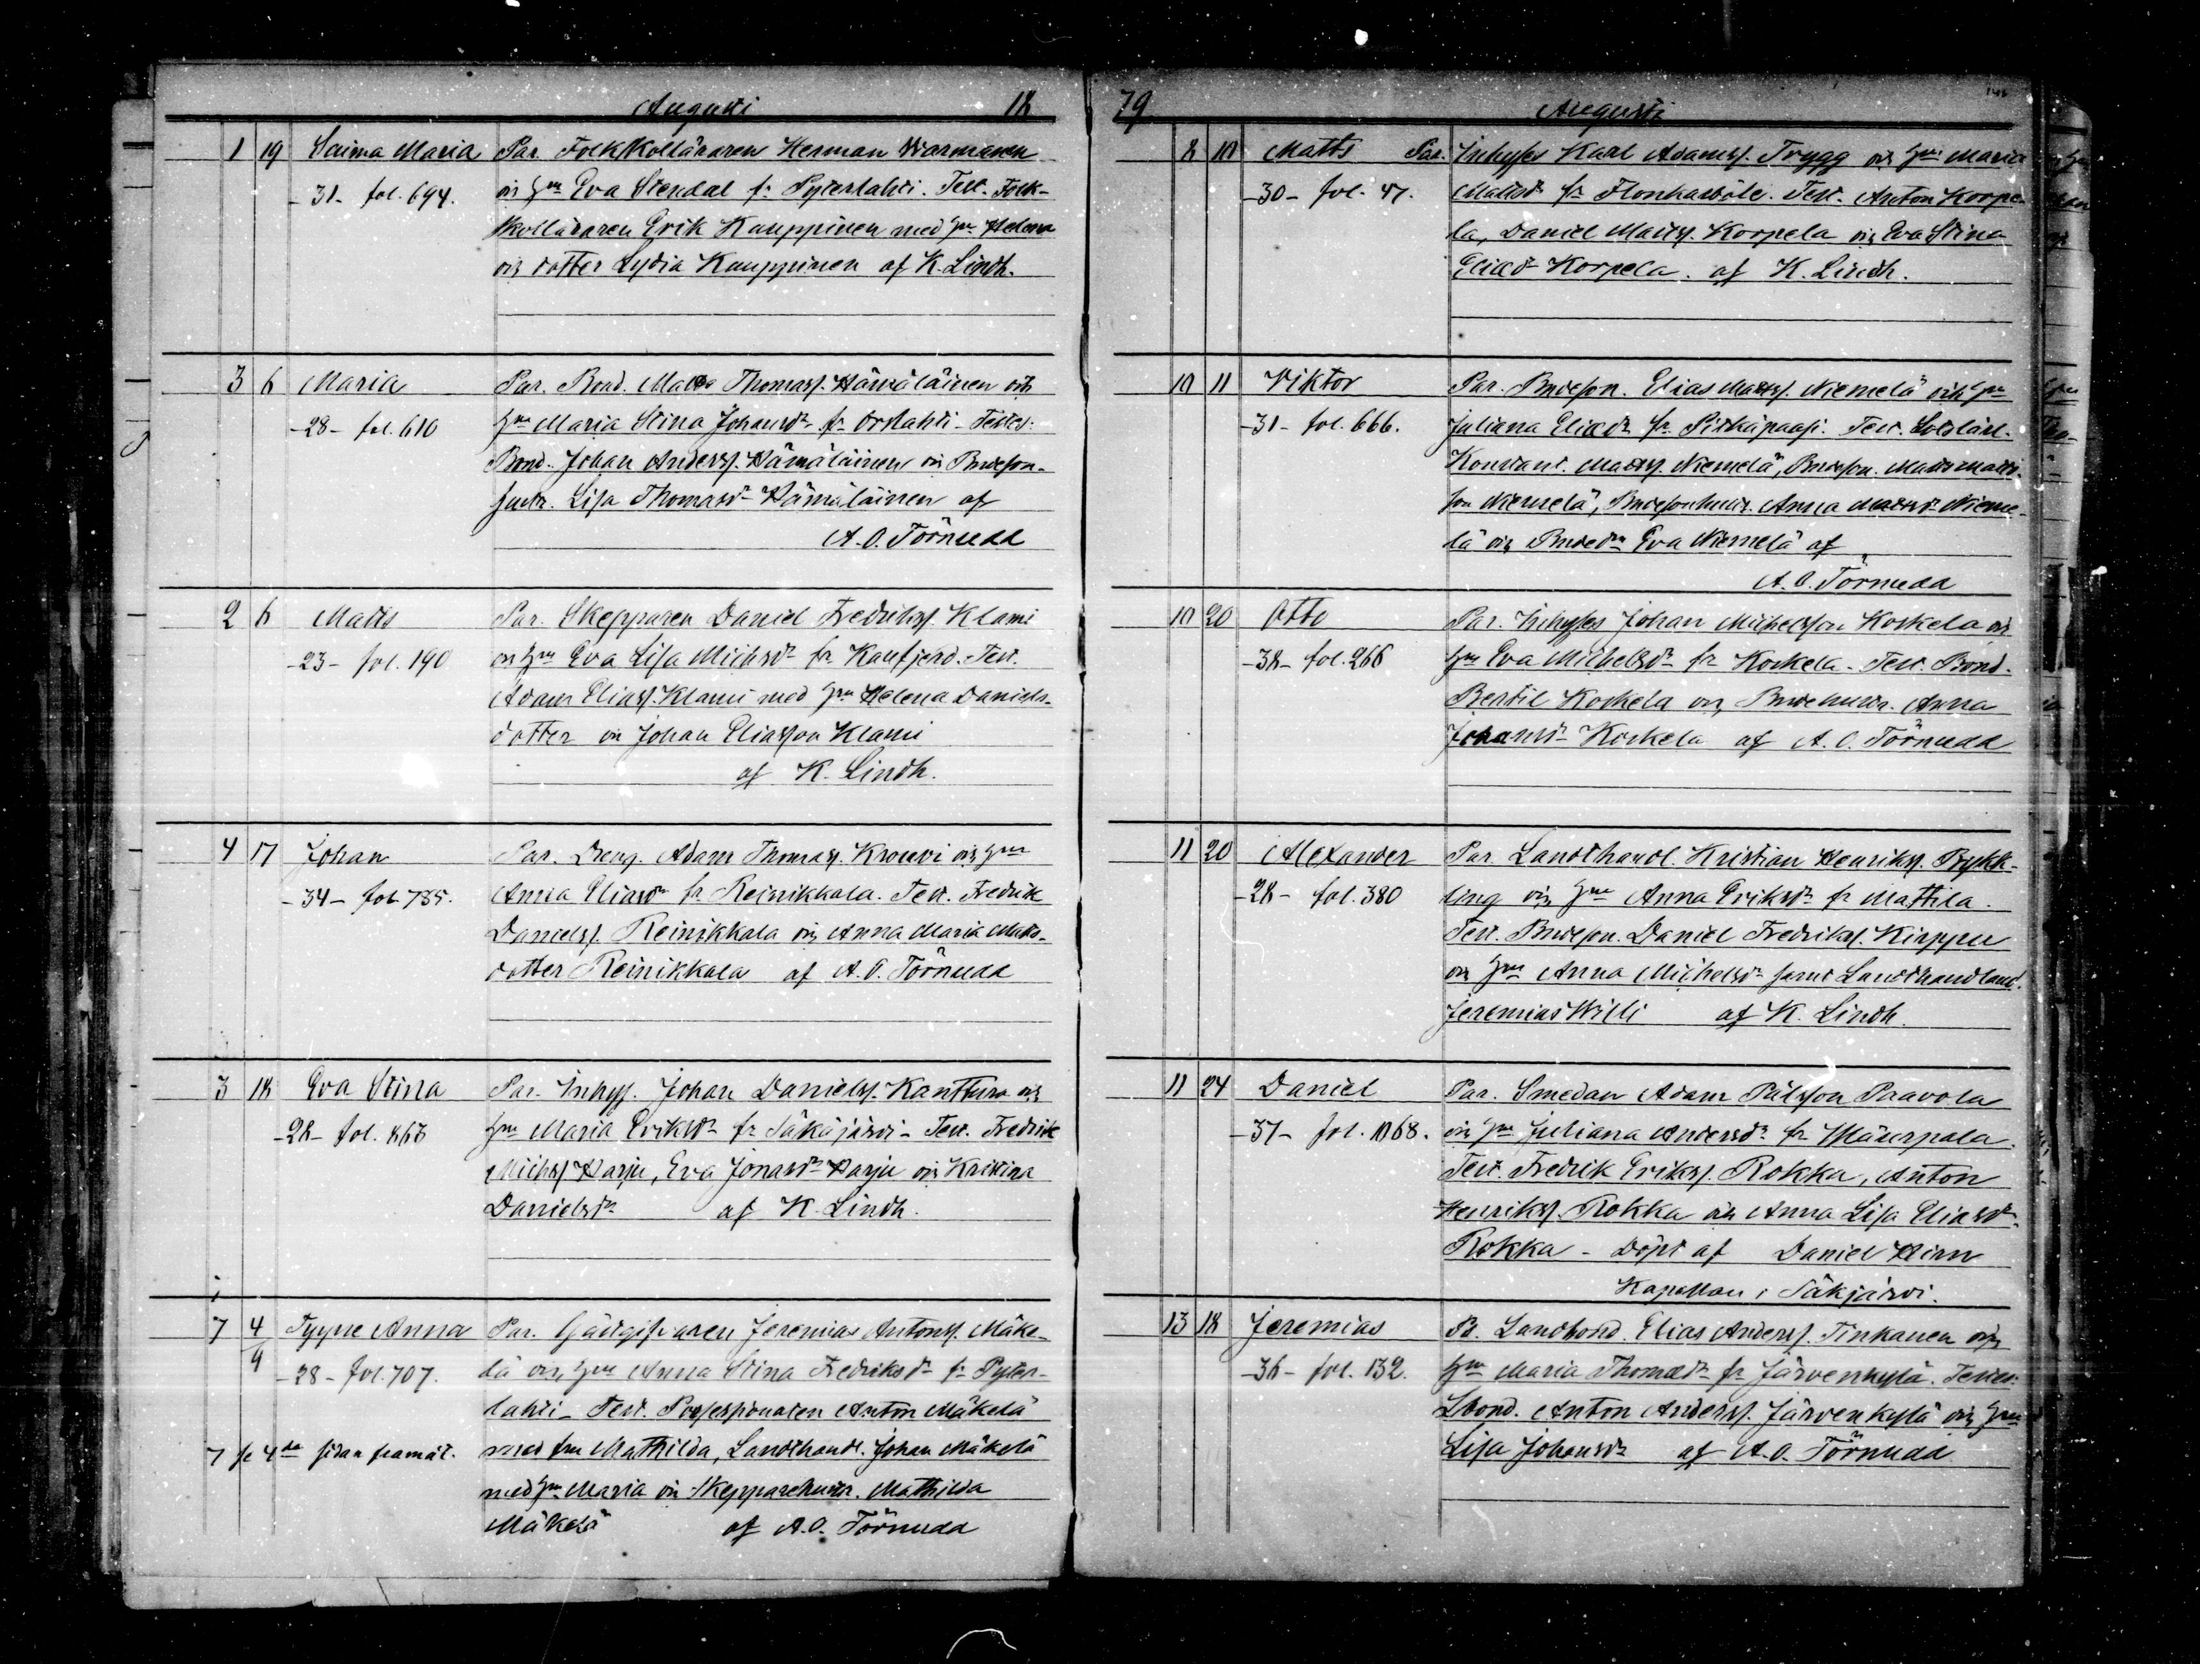 Augusti 18
1 19 Saima Maria Par. Folkskolläraren Herman Warmanen
-31- fol. 694. och hu Eva Stendal fr Pyterlahti. Test. Folk-
skolläraren Erik Kauppinen med hu Helena
och dotter Lydia Kauppinen af K. Lindh.
3 6 Maria Par. Bond. Matts Thomass. Hämäläinen och
-28- fol. 610 hu Maria Stina Johansdr fr Orslahti - Testes:
Bond. Johan Anderss. Hämäläinen och Bndeson-
hustr. Lisa Thomasdr Hämäläinen af
A. O. Törnudd
2 6 Matts Par. Skepparen Daniel Fredrikss. Klami
-23- fol. 190 och hu Eva Lisa Michsdr fr Kanfjerd. Test.
Adam Eliass. Klami med hu Helena Daniels-
dotter och Johan Eliasson Klami
af K. Lindh.
4 17 Johan Par. Dreng. Adam Thomass. Krouvi och hu
-34- fol. 735. Anna Eliasdr fr Reinikkala. Test. Fredrik
Danielss. Reinikkala och Anna Maria Matts-
dotter Reinikkala af A. O. Törnudd
3 18 Eva Stina Par. Inhys. Johan Danielss. Kanttura och
-28- fol. 863 hu Maria Eriksdr fr Säkäjärvi - Test. Fredrik
Michss Harju, Eva Jonasdr Harju och Kristina
Danielsdr af K. Lindh.
7 4/9 Tyyne Anna Par. Gästgifvaren Jeremias Antonss. Mäke-
-28- fol. 707. lä och hu Anna Stina Fredriksdr fr Pyter-
lahti - Test. Possessionaten Anton Mäkelä
7 se 4de sidan framåt. med fru Mathilda, Landthandl. Johan Mäkelä
med hu Maria och Skepparehustr. Mathilda
Mäkelä af A. O. Törnudd
79 Augusti
8 10 Matts Par. Inhyses Karl Adamss. Trygg och hu Maria
-30- fol. 47. Mattsdr fr Flonkarböle. Test. Anton Korpe-
la, Daniel Matss. Korpela och Eva Stina
Eliasdr Korpela. af K. Lindh.
10 11 Viktor Par. Bndeson. Elias Mattss. Niemelä och hu
-31- fol. 666. Juliana Eliasdr fr Pitkäpaasi. Test.
Konstant. Mattss. Niemelä, Bndeson. Matts Matts-
son Niemelä, Bndesonhustr. Anna Mattsdr Nieme-
lä och Bndedr Eva Niemelä af
A. O. Törnudd
10 20 Otto Par. Inhyses Johan Michelsson Koskela och
-38- fol. 266 hu Eva Michelsdr fr Koskela - Test. Bond.
Bertil Koskela och Bndehustr. Anna
Johansdr Koskela af A. O. Törnudd
11 20 Alexander Par. Landthandl. Kristian Henrikss. Rykk-
-28- fol. 380 ling och hu Anna Eriksdr fr Mattila.
Test. Bndeson. Daniel Fredrikss. Kirppu
och hu Anna Michelsdr samt Landthandland.
Jeremias Willi af K. Lindh.
11 24 Daniel Par. Smeden Adam Pålsson Paavola
-37- fol. 1068. och hu Juliana Andersdr fr Määrpala.
Test. Fredrik Erikss. Rokka, Anton
Henrikss. Rokka och Anna Lisa Eliasdr
Rokka - Döpt af Daniel Hirn
Kapellan i Säkjärvi.
13 18 Jeremias Pr. Landbond. Elias Anderss. Tinkanen och
-36- fol. 132. hu Maria Thomasdr fr Järvenkylä. Testes:
Lbond. Anton Anderss. Järvenkylä och hu
Lisa Johansdr af A. O. Törnudd